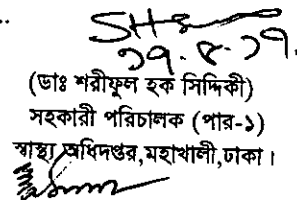 ১৭.৪.১৭.
(ডাঃ শরীফুল হক সিদ্দিকী)
সহকারী পরিচালক (পার-১)
স্বাস্থ্য অধিদপ্তর,মহাখালী,ঢাকা।